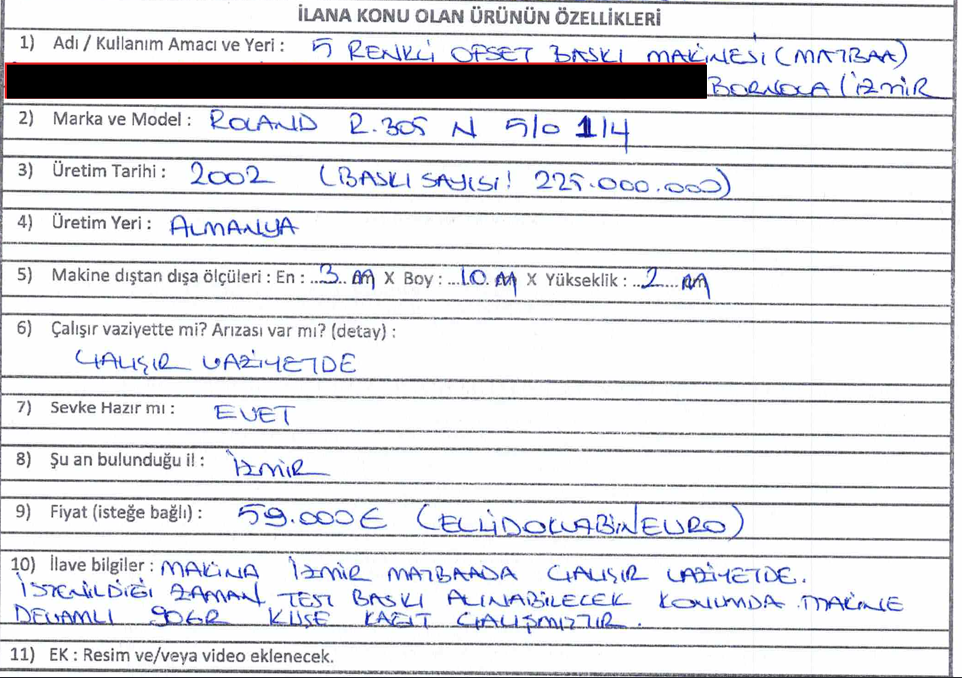 İLANA KONU OLAN ÜRÜNÜN ÖZELLİKLERİ
1) Adı / Kullanım Amacı ve Yeri : 5 RENKLİ OFSET BASKI MAKİNESİ (MATBAA)
BORNOVA / İZMİR
2) Marka ve Model : ROLAND R.305 N 5/0 1/4
3) Üretim Tarihi : 2002 (BASKI SAYISI! 225.000.000)
4) Üretim Yeri : ALMANYA
5) Makine dıştan dışa ölçüleri : En : ..3.. M X Boy : ...10. M X Yükseklik : ..2.... M
6) Çalışır vaziyette mi? Arızası var mı? (detay) :
ÇALIŞIR VAZİYETDE
7) Sevke Hazır mı : EVET
8) Şu an bulunduğu il : İZMİR
9) Fiyat (isteğe bağlı) : 59.000 € (ELLİDOKUZBİN EURO)
10) İlave bilgiler : MAKİNA İZMİR MATBAADA ÇALIŞIR VAZİYETDE.
İSTENİLDİĞİ ZAMAN TEST BASKI ALINABİLECEK KONUMDA. MAKİNE
DEVAMLI 90GR KUŞE KAĞIT ÇALIŞMIŞTIR.
11) EK : Resim ve/veya video eklenecek.